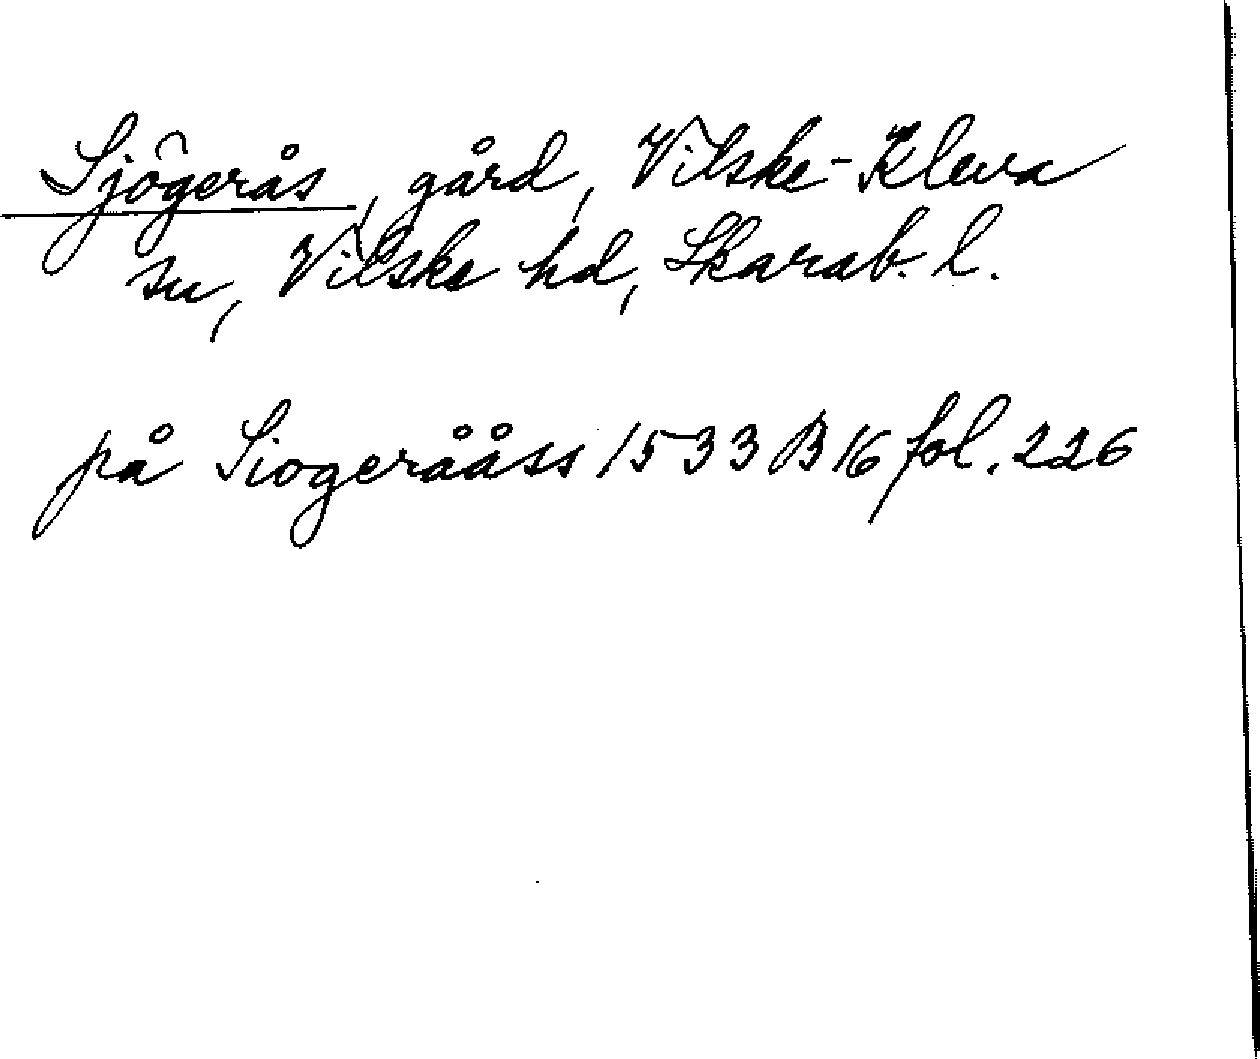 Sjögerås, gård, Vilske-Kleva
sn, Vilske hd, Skarab. l.
på Siogerååss 1533 B 16 fol. 226